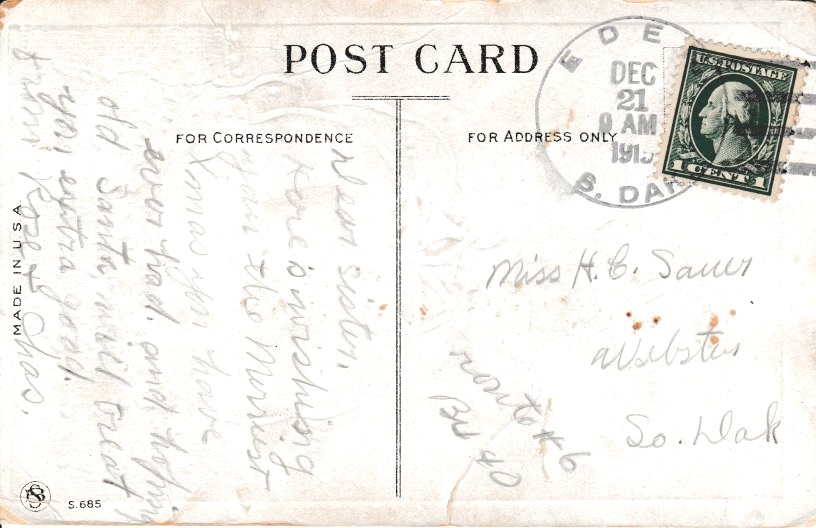 POST CARD
FOR CORRESPONDENCE
FOR ADDRESS ONLY
EDE
DEC
21
8 AM
191
S. DAK
U.S. POSTAGE
1 CENT 1
Dear Sister,
Here is wishing
you the Merriest
Xmas you have
ever had. and hoping
old Santa will treat
you extra good.
from Rose + Chas.
Miss H. C. Sauer
Webster
So. Dak
route #6
Bx 40
MADE IN U.S.A.
S.685